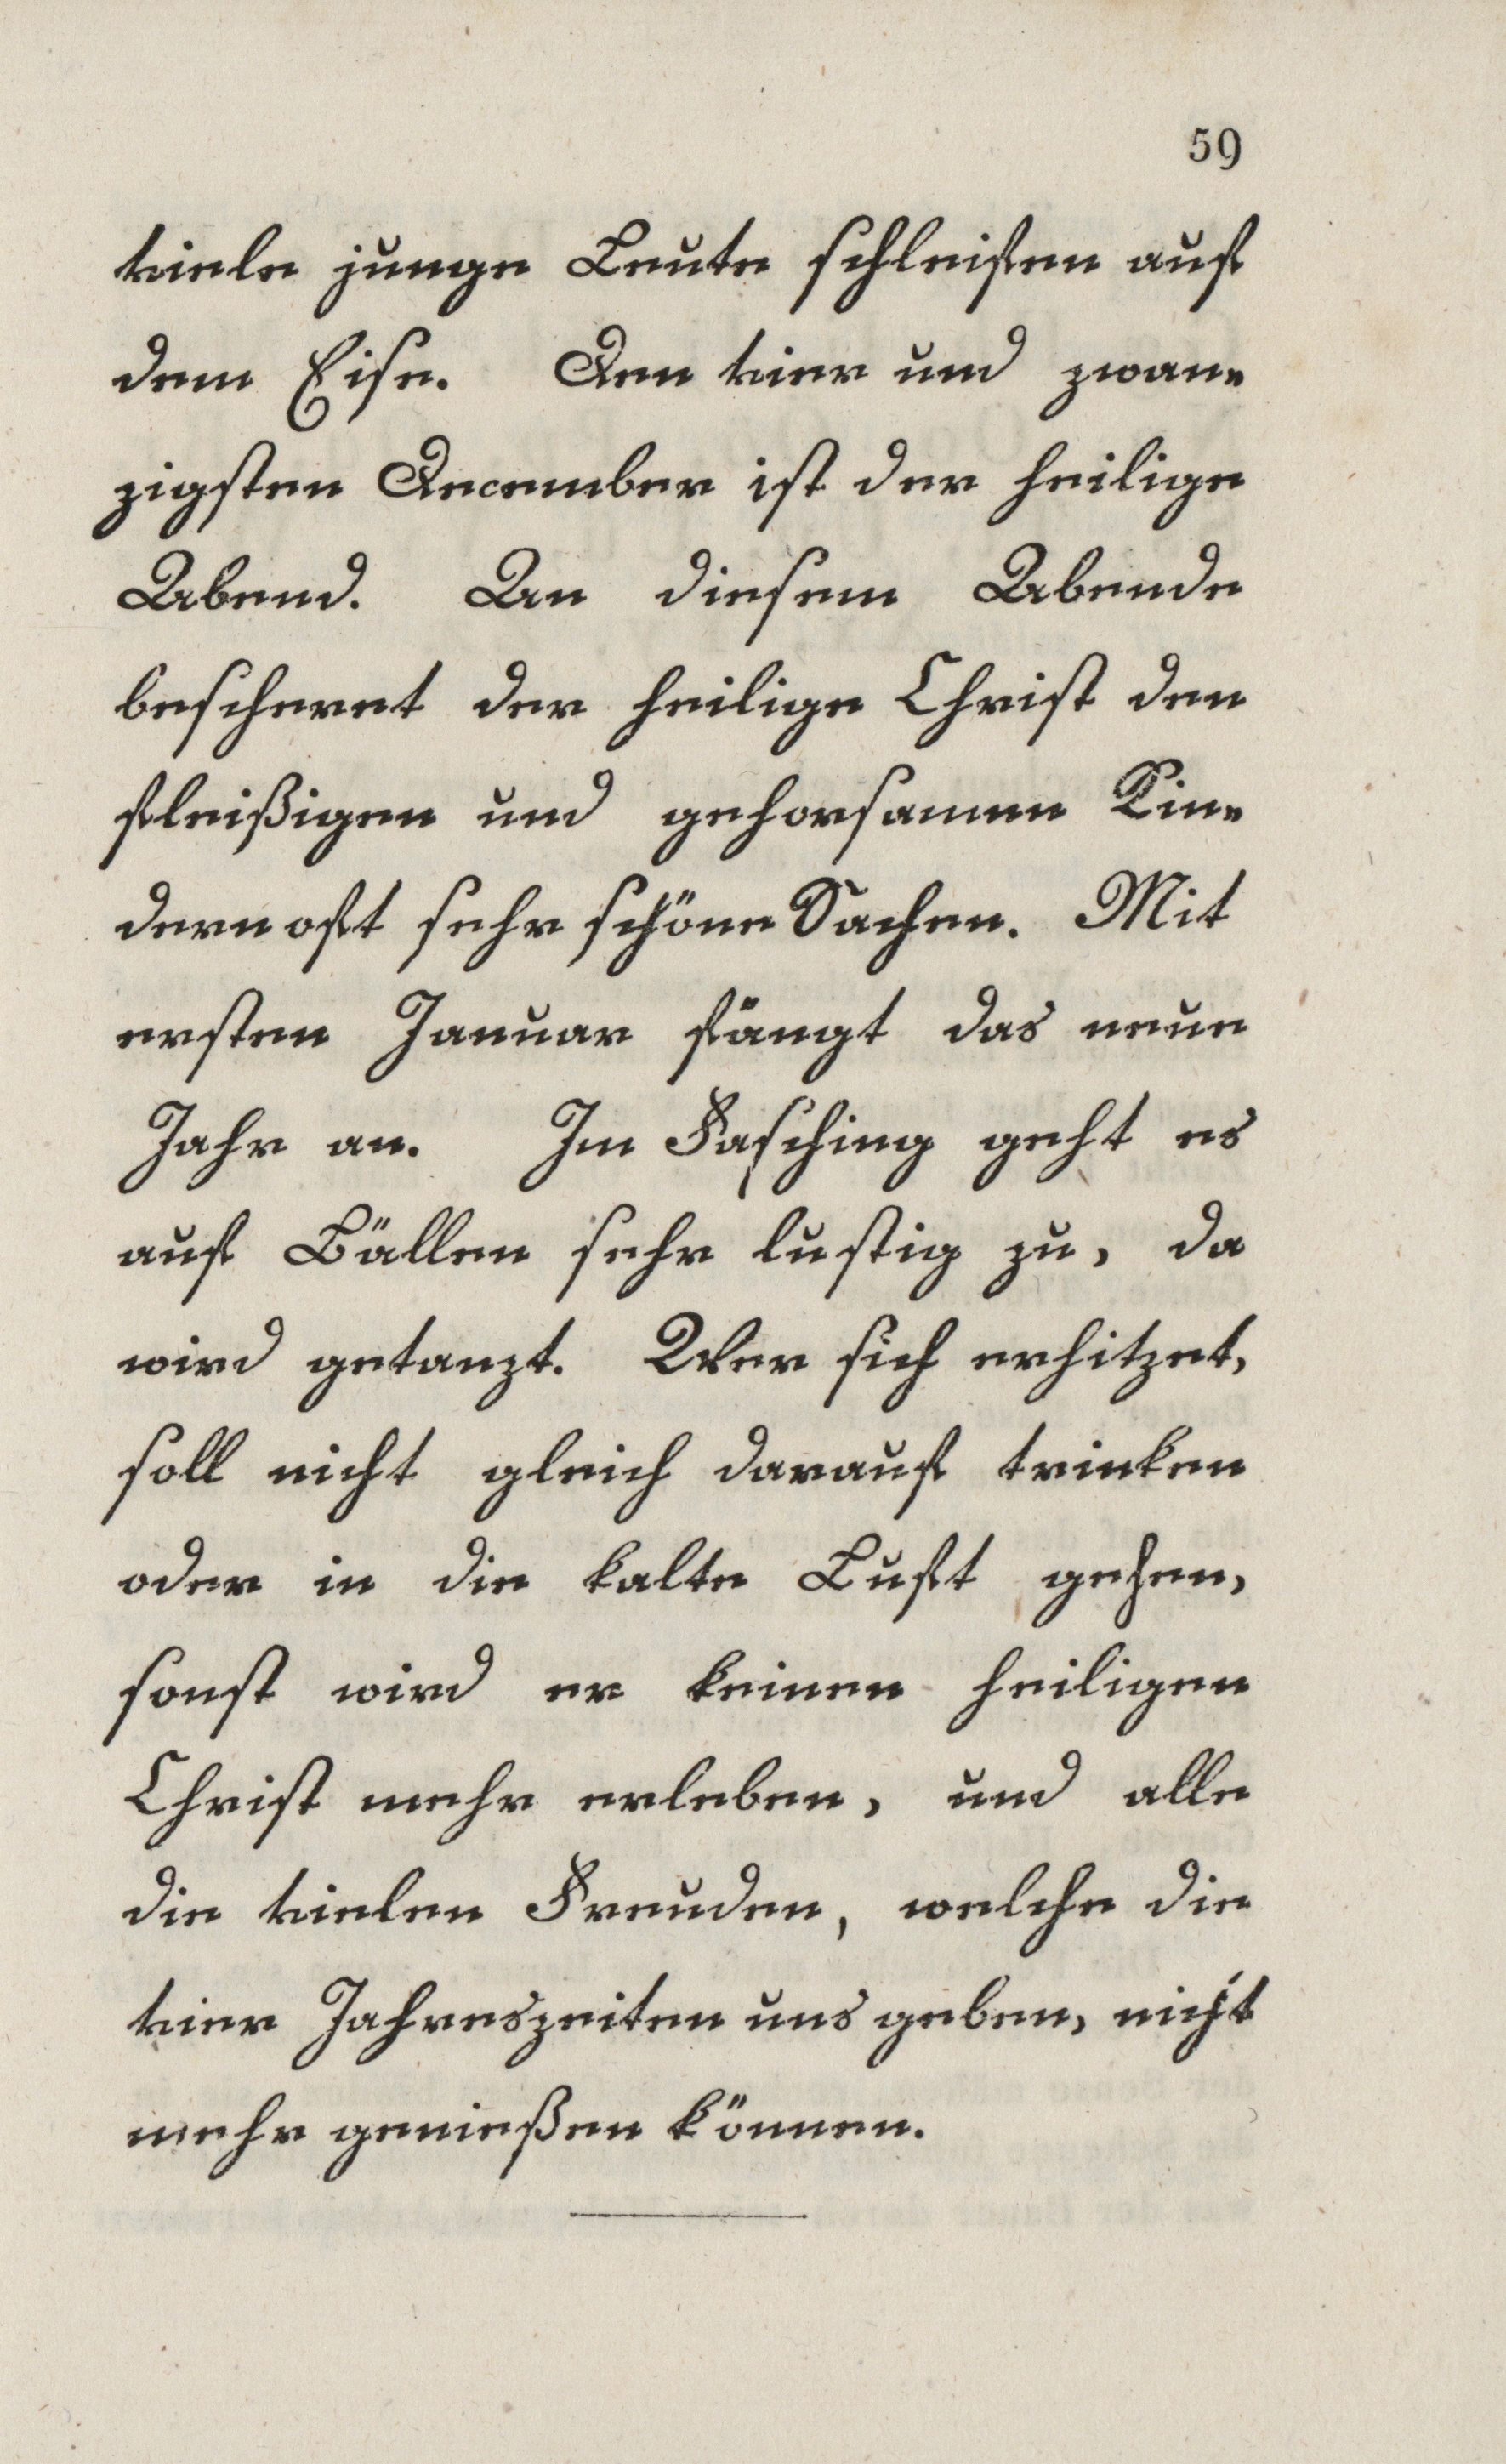 59
viele junge Leute schleifen auf
dem Eise. Den vier und zwan-
zigsten December ist der heilige
Abend. An diesem Abende
bescheret der heilige Christ den
fleißigen und gehorsamen Kin-
dern oft sehr schöne Sachen. Mit
ersten Januar fängt das neue
Jahr an. Im Fasching geht es
auf Bällen sehr lustig zu, da
wird getanzt. Wer sich erhitzet,
soll nicht gleich darauf trinken
oder in die kalte Luft gehen,
sonst wird er keinen heiligen
Christ mehr erleben, und alle
die vielen Freuden, welche die
vier Jahreszeiten uns geben, nicht
mehr genießen können.